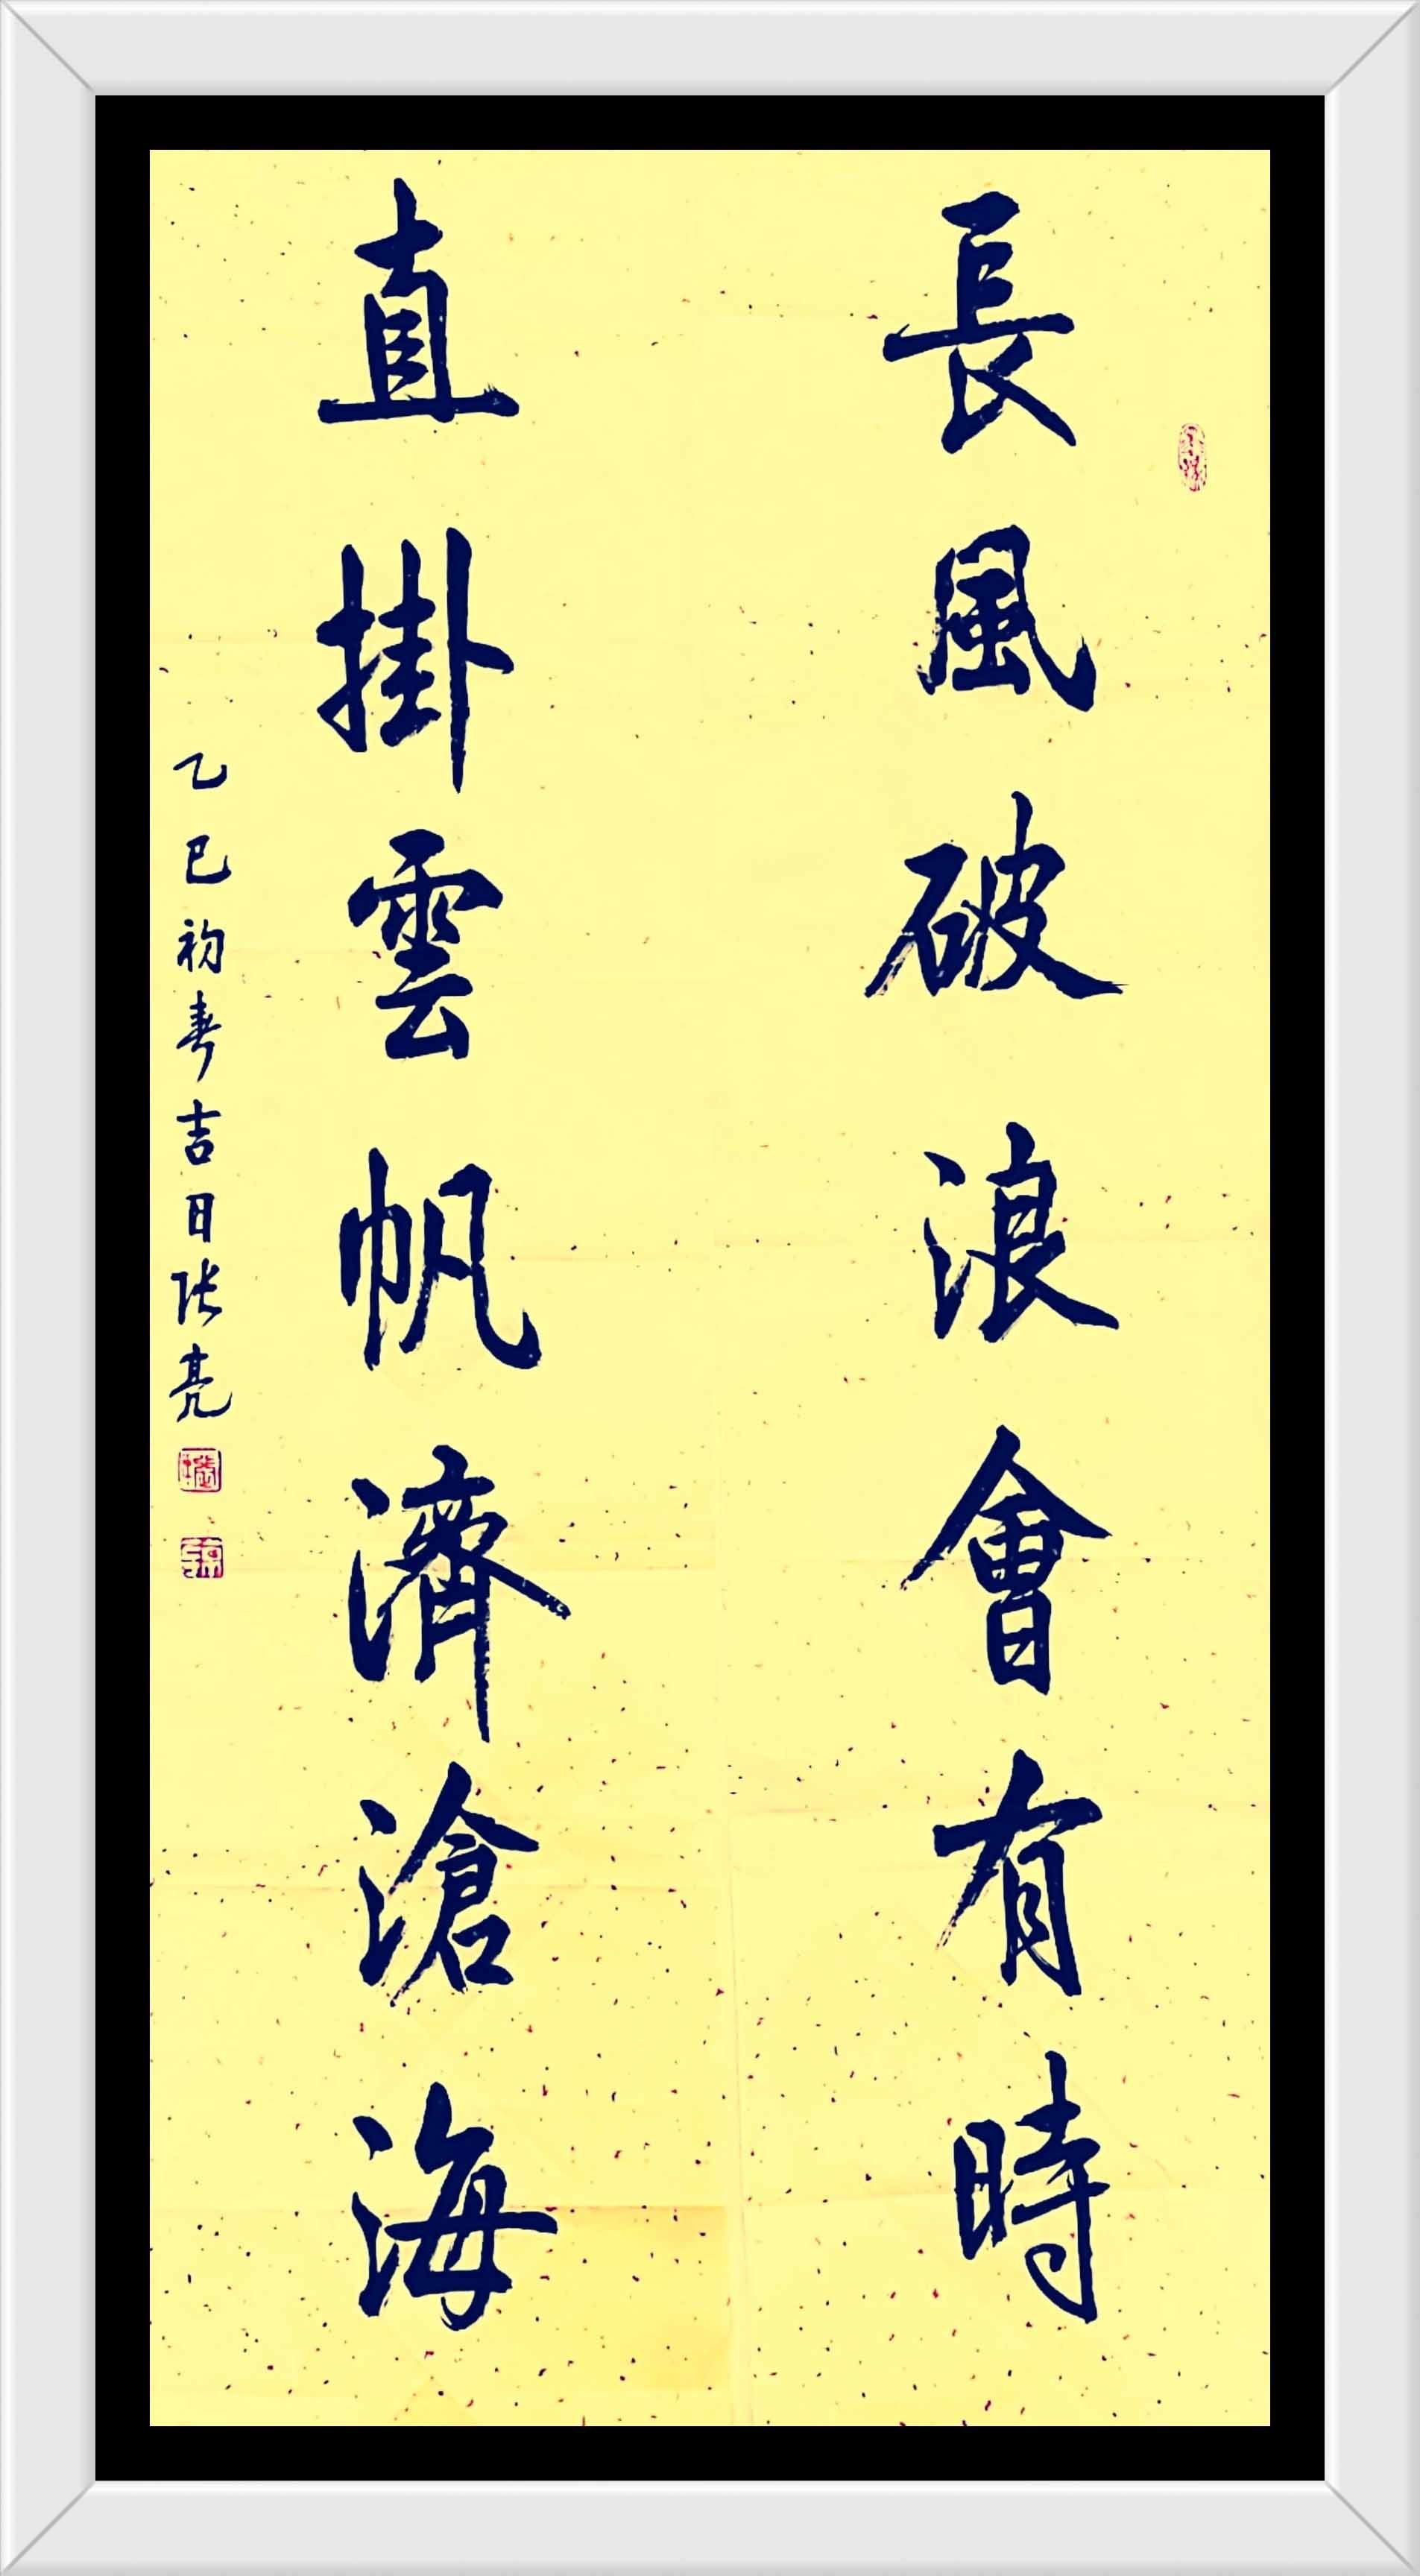 長風破浪會有時
直掛雲帆濟滄海
乙巳初春吉日张亮